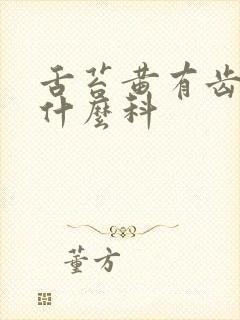 舌苔黄有齿
什麼科
董方